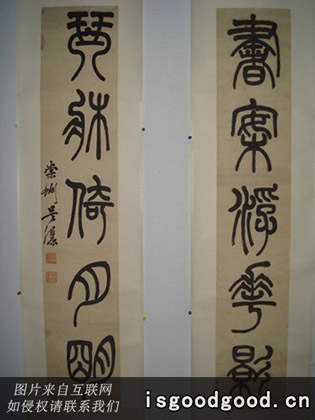 書案浮華影
琴牀倚月明
图片来自互联网
如侵权请联系我们
isgoodgood.cn